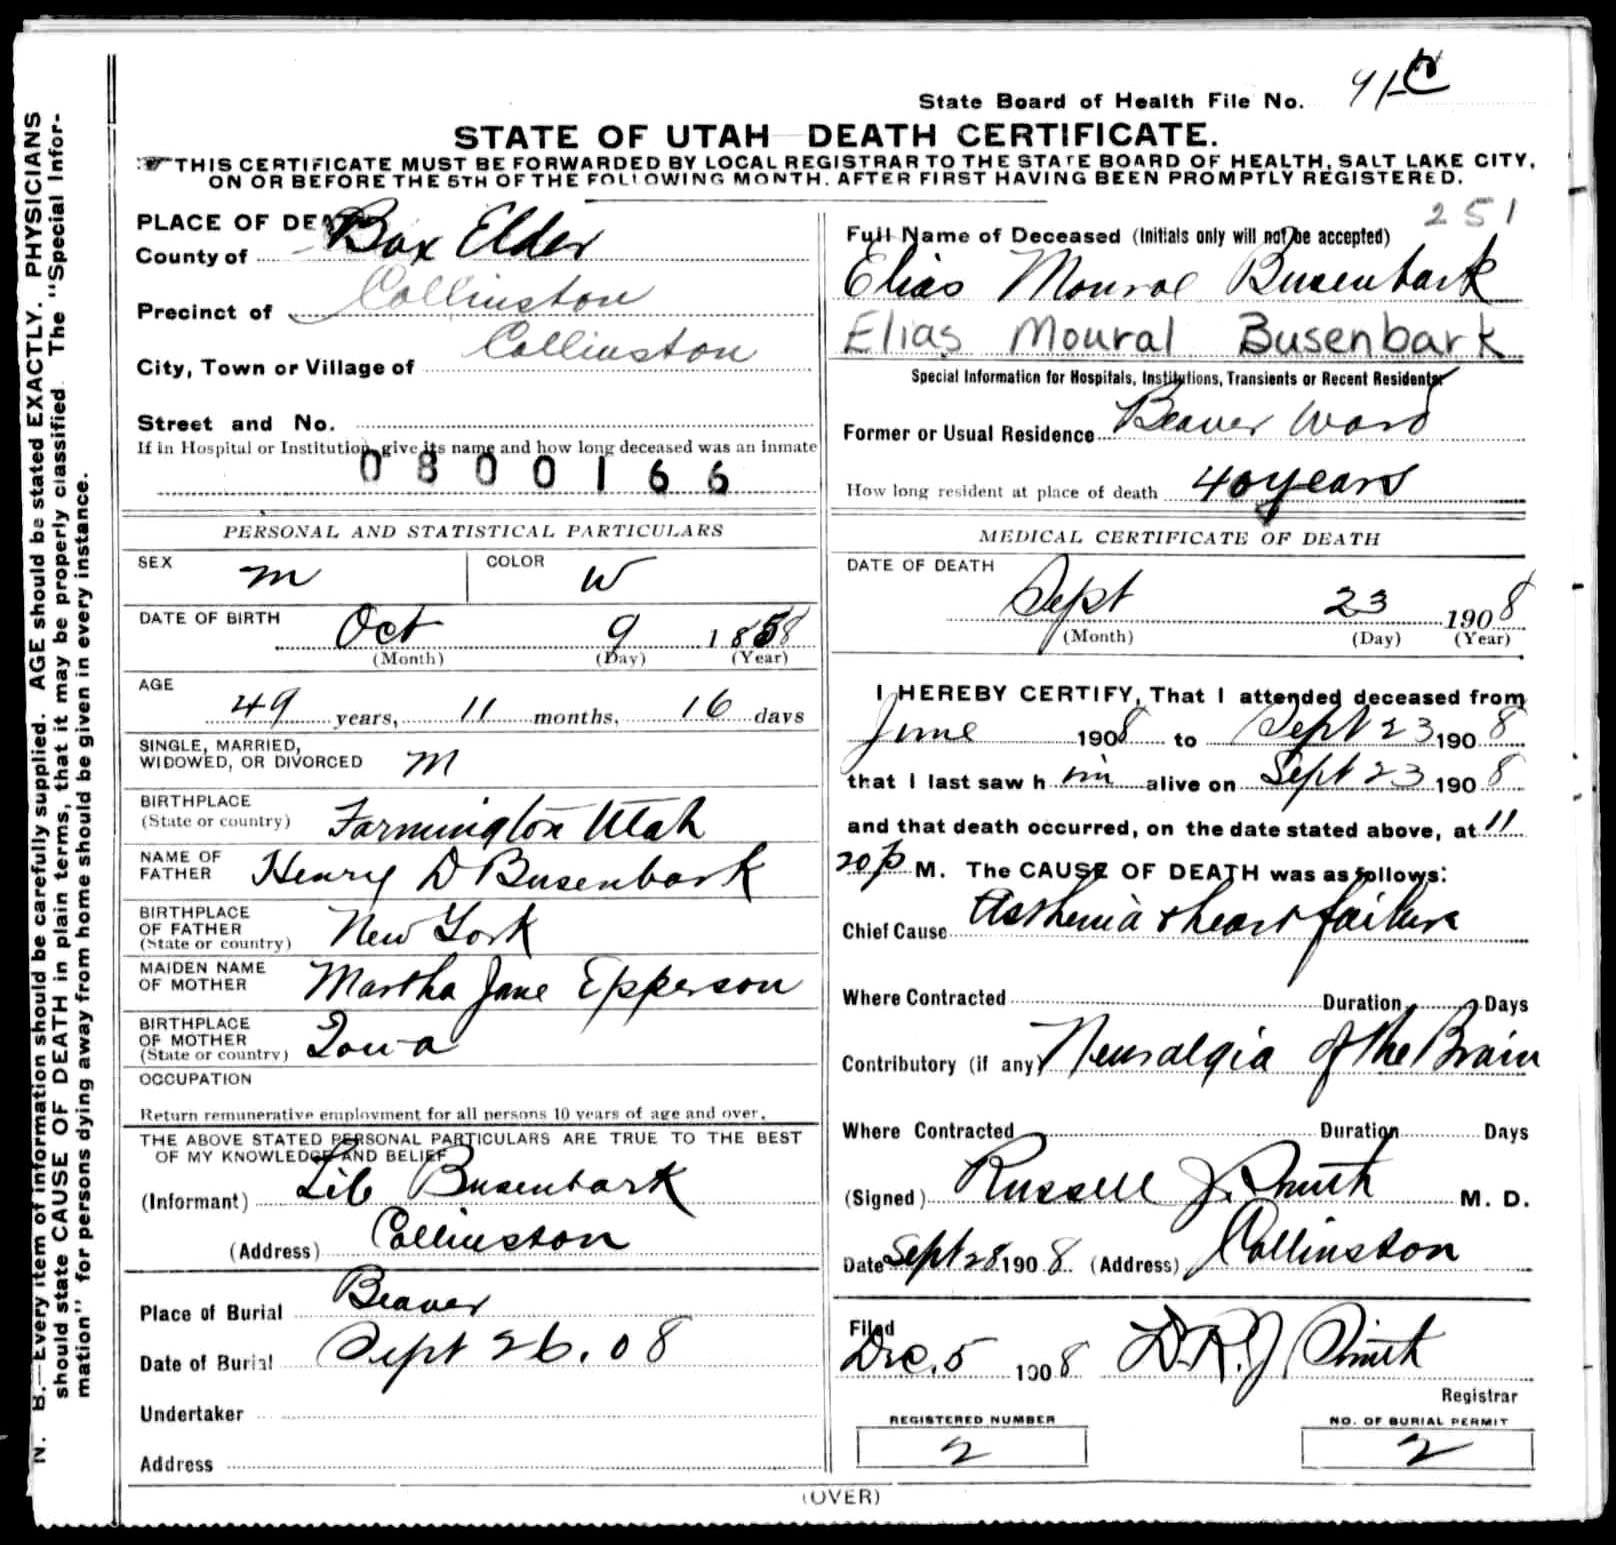 State Board of Health File No.
STATE OF UTAH DEATH CERTIFICATE.
THIS CERTIFICATE MUST BE FORWARDED BY LOCAL REGISTRAR TO THE STATE BOARD OF HEALTH, SALT LAKE CITY,
ON OR BEFORE THE 5TH OF THE FOLLOWING MONTH. AFTER FIRST HAVING BEEN PROMPTLY REGISTERED.
N. B.—Every item of information should be carefully supplied. AGE should be stated EXACTLY. PHYSICIANS
should state CAUSE OF DEATH in plain terms, that it may be properly classified. The "Special Infor-
mation" for persons dying away from home should be given in every instance.
PLACE OF DEATH
County of Box Elder
Precinct of Collinston
City, Town or Village of Collinston
Street and No.
If in Hospital or Institution, give its name and how long deceased was an inmate
0800166
PERSONAL AND STATISTICAL PARTICULARS
SEX M COLOR W
DATE OF BIRTH Oct 9 1858
(Month) (Day) (Year)
AGE
49 years, 11 months, 16 days
SINGLE, MARRIED,
WIDOWED, OR DIVORCED M
BIRTHPLACE
(State or country) Farmington Utah
NAME OF
FATHER Henry D Busenbark
BIRTHPLACE
OF FATHER
(State or country) New York
MAIDEN NAME
OF MOTHER Martha Jane Epperson
BIRTHPLACE
OF MOTHER
(State or country) Iowa
OCCUPATION
Return remunerative employment for all persons 10 years of age and over.
THE ABOVE STATED PERSONAL PARTICULARS ARE TRUE TO THE BEST
OF MY KNOWLEDGE AND BELIEF
(Informant) Lib Busenbark
(Address) Collinston
Place of Burial Beaver
Date of Burial Sept 26. 08
Undertaker
Address
251
Full Name of Deceased (Initials only will not be accepted)
Elias Monroe Busenbark
Elias Moural Busenbark
Special Information for Hospitals, Institutions, Transients or Recent Residents
Former or Usual Residence Beaver Ward
How long resident at place of death 40 years
MEDICAL CERTIFICATE OF DEATH
DATE OF DEATH
Sept 23 1908
(Month) (Day) (Year)
I HEREBY CERTIFY, That I attended deceased from
June 1908 to Sept 23 1908
that I last saw him alive on Sept 23 1908
and that death occurred, on the date stated above, at 11
20 p M. The CAUSE OF DEATH was as follows:
Chief Cause Asthenia & heart failure
Where Contracted Duration Days
Contributory (if any) Neuralgia of the Brain
Where Contracted Duration Days
(Signed) Russell J. Smith M. D.
Date Sept 28 1908 (Address) Collinston
Filed
Dec. 5 1908 D.R.J Smith
Registrar
REGISTERED NUMBER
2
NO. OF BURIAL PERMIT
2
(OVER)